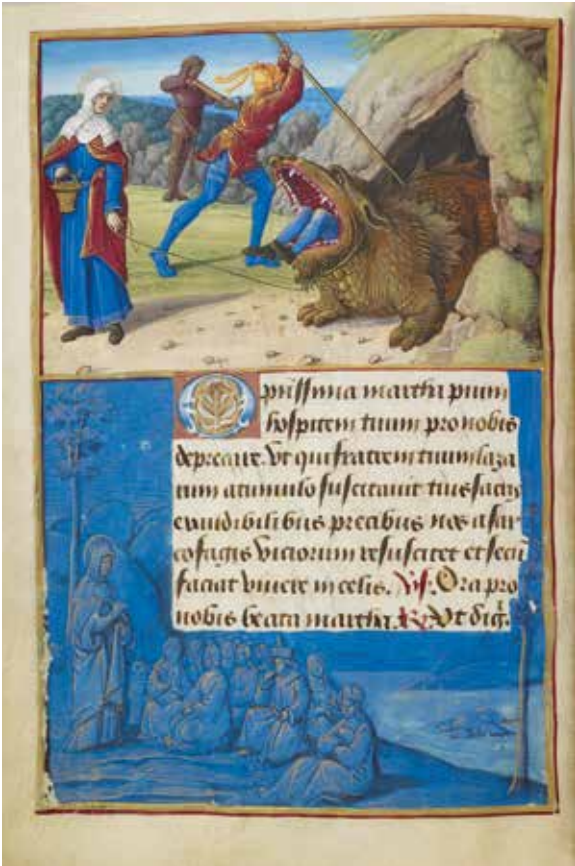 O piissima martha pium
hospitem tuum pro nobis
deprecare. Vt qui fratrem tuum laza
rum a tumulo suscitauit tuis sacris
exaudibilibus precibus nos a sar
cofagis viciorum resuscitet et secū
faciat viuere in celis. Vs. Ora pro
nobis beata martha. R. Vt dig.